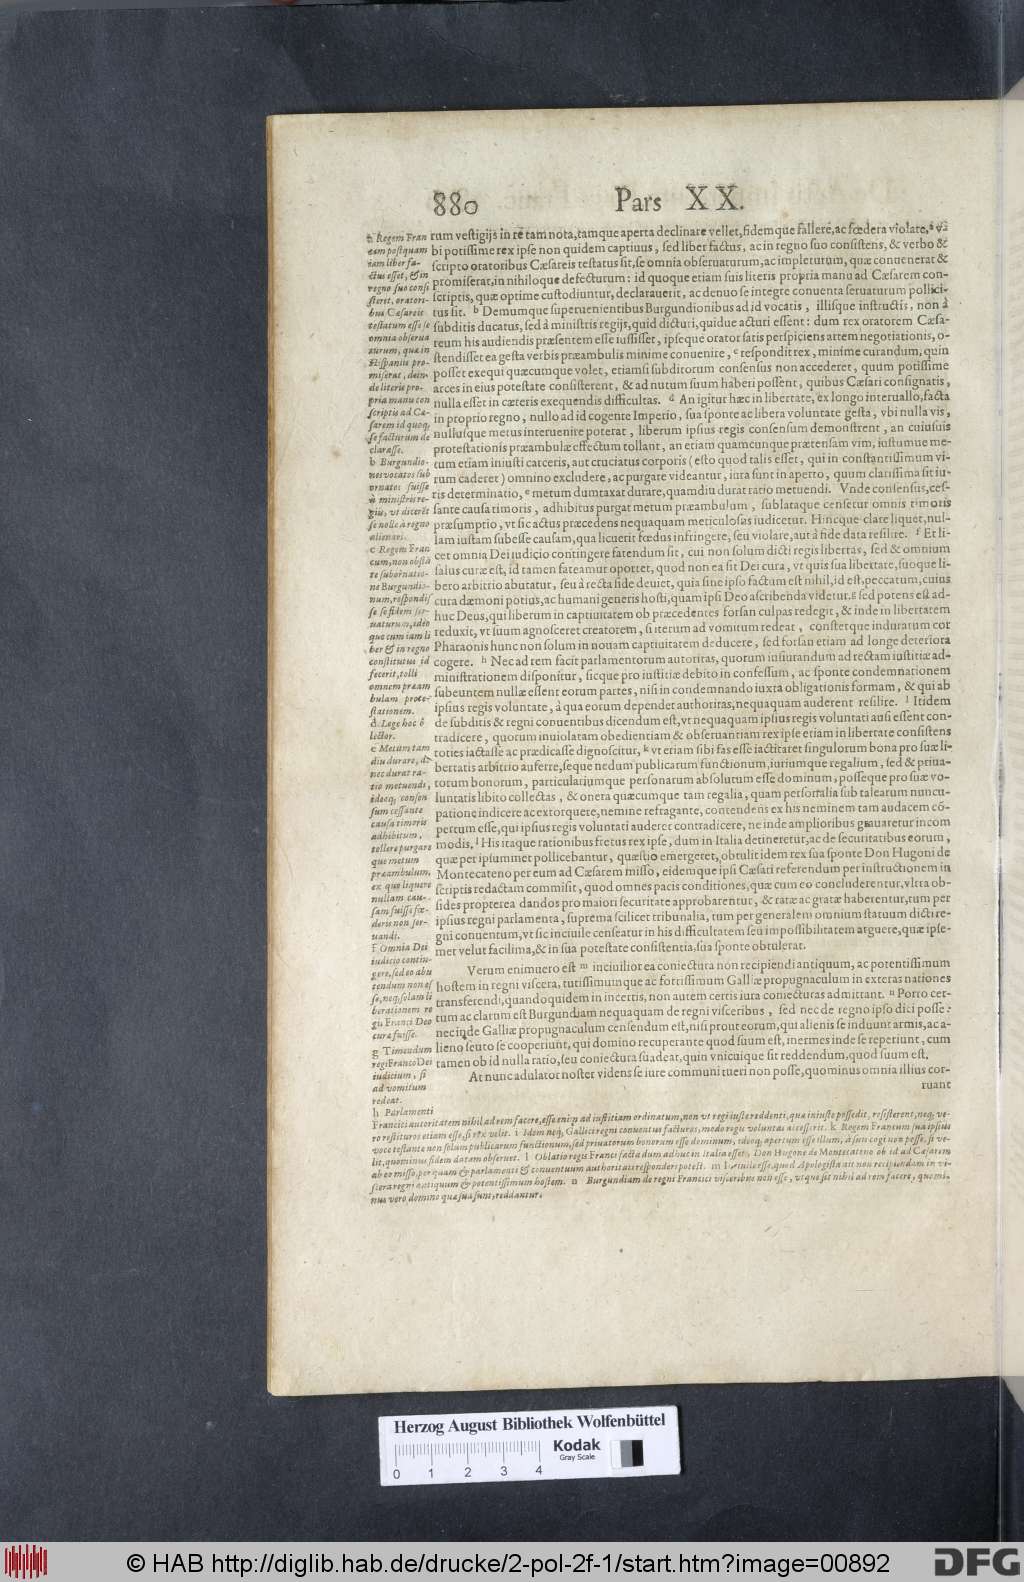 880 Pars XX.
rum vestigijs in rē tam nota, tamque aperta declinare vellet, fidemque fallere, ac fœdera violare, a V-
bi potissime rex ipse non quidem captiuus, sed liber factus, ac in regno suo consistens, & verbo &
scripto oratoribus Cæsareis testatus sit, se omnia obseruaturum, ac impleturum, quæ conuenerat &
promiserat, in nihiloque defecturum: id quoque etiam suis literis propria manu ad Cæsarem con-
scriptis, quæ optime custodiuntur, declarauerit, ac denuo se integre conuenta seruaturum pollici-
tus sit. b Demumque superuenientibus Burgundionibus ad id vocatis, illisque instructis, non à
subditis ducatus, sed à ministris regijs, quid dicturi, quidue acturi essent: dum rex oratorem Cæsa-
reum his audiendis præsentem esse iussisset, ipseque orator satis perspiciens artem negotiationis, o-
stendisset ea gesta verbis præambulis minime conuenire, c respondit rex, minime curandum, quin
posset exequi quæcumque volet, etiamsi subditorum consensus non accederet, quum potissime
arces in eius potestate consisterent, & ad nutum suum haberi possent, quibus Cæsari consignatis,
nulla esset in cæteris exequendis difficultas. d An igitur hæc in libertate, ex longo interuallo, facta
in proprio regno, nullo ad id cogente Imperio, sua sponte ac libera voluntate gesta, vbi nulla vis,
nullusque metus interuenire poterat, liberum ipsius regis consensum demonstrent, an cuiusuis
protestationis præambulæ effectum tollant, an etiam quamcunque prætensam vim, iustumue me-
tum etiam iniusti carceris, aut cruciatus corporis (esto quod talis esset, qui in constantissimum vi-
rum caderet) omnino excludere, ac purgare videantur, iura sunt in aperto, quum clarissima sit iu-
ris determinatio, e metum dumtaxat durare, quamdiu durat ratio metuendi. Vnde consensus, ces-
sante causa timoris, adhibitus purgat metum præambulum, sublataque censetur omnis timoris
præsumptio, vt sic actus præcedens nequaquam meticulosus iudicetur. Hincque clare liquet, nul-
lam iustam subesse causam, qua licuerit fœdus infringere, seu violare, aut à fide data resilire. f Et li-
cet omnia Dei iudicio contingere fatendum sit, cui non solum dicti regis libertas, sed & omnium
salus curæ est, id tamen fateamur oportet, quod non ea sit Dei cura, vt quis sua libertate, suoque li-
bero arbitrio abutatur, seu à recta fide deuiet, quia sine ipso factum est nihil, id est, peccatum, cuius
cura dæmoni potius, ac humani generis hosti, quam ipsi Deo ascribenda videtur. g sed potens est ad-
huc Deus, qui liberum in captiuitatem ob præcedentes forsan culpas redegit, & inde in libertatem
reduxit, vt suum agnosceret creatorem, si iterum ad vomitum redeat, constetque induratum cor
Pharaonis hunc non solum in nouam captiuitatem deducere, sed forsan etiam ad longe deteriora
cogere. h Nec ad rem facit parlamentorum autoritas, quorum iusiurandum ad rectam iustitiæ ad-
ministrationem disponitur, sicque pro iustitiæ debito in confessum, ac sponte condemnationem
subeuntem nullæ essent eorum partes, nisi in condemnando iuxta obligationis formam, & qui ab
ipsius regis voluntate, à qua eorum dependet authoritas, nequaquam auderent resilire. i Itidem
de subditis & regni conuentibus dicendum est, vt nequaquam ipsius regis voluntati ausi essent con-
tradicere, quorum inuiolatam obedientiam & obseruantiam rex ipse in libertate consistens
toties iactasse ac prædicasse dignoscitur, k vt etiam sibi fas esse iactitaret singulorum bona pro suæ li-
bertatis arbitrio auferre, seque nedum publicarum functionum, iuriumque regalium, sed & priua-
torum bonorum, particulariumque personarum absolutum esse dominum, posseque pro suæ vo-
luntatis libito collectas, & onera quæcumque tam regalia, quam personalia sub talearum nuncu-
patione indicere ac extorquere, nemine refragante, contendens ex his neminem tam audacem cō-
pertum esse, qui ipsius regis voluntati auderet contradicere, ne inde amplioribus grauaretur incom
modis. l His itaque rationibus fretus rex ipse, dum in Italia detineretur, ac de securitatibus eorum,
quæ per ipsummet pollicebantur, quæstio emergeret, obtulit idem rex sua sponte Don Hugoni de
Montecateno per eum ad Cæsarem misso, eidemque ipsi Cæsari referendum per instructionem in
scriptis redactam commisit, quod omnes pacis conditiones, quæ cum eo concluderentur, vltra ob-
sides propterea dandos pro maiori securitate approbarentur, & ratæ ac gratæ haberentur, tum per
ipsius regni parlamenta, suprema scilicet tribunalia, tum per generalem omnium statuum dicti re-
gni conuentum, vt sic inciuile censeatur in his difficultatem seu impossibilitatem arguere, quæ ipse-
met velut facilima, & in sua potestate consistentia, sua sponte obtulerat.
Verum enimuero est m inciuilior ea coniectura non recipiendi antiquum, ac potentissimum
hostem in regni viscera, tutissimumque ac fortissimum Galliæ propugnaculum in exteras nationes
transferendi, quandoquidem in incertis, non autem certis iura coniecturas admittant. n Porro cer-
tum ac clarum est Burgundiam nequaquam de regni visceribus, sed nec de regno ipso dici posse:
necinde Galliæ propugnaculum censendum est, nisi prout eorum, qui alienis se induunt armis, ac a-
lieno scuto se cooperiunt, qui domino recuperante quod suum est, inermes inde se reperiunt, cum
tamen ob id nulla ratio, seu coniectura suadeat, quin vnicuique sit reddendum, quod suum est.
At nunc adulator noster videns se iure communi tueri non posse, quominus omnia illius cor-
ruant
a Regem Fran
cum postquam
iam liber fa-
ctus esset, & in
regno suo consi
steret, oratori-
bus Cæsareis
testatum esse se
omnia obserua
turum, quæ in
Hispaniis pro-
miserat, dein-
de literis pro-
pria manu con
scriptis ad Cæ-
sarem id quoq;
se facturum de
clarasse.
b Burgundio-
nes vocatos sub
ornatos fuisse
à ministris re-
giis, vt dicerēt
se nolle à regno
alienari.
c Regem Fran
cum, non obstā
te subornatio-
ne Burgundio-
num, respondis
se se fidem ser-
uaturum, ideo
que cum iam li
ber & in regno
constitutus id
fecerit, tolli
omnem præam
bulam prote-
stationem.
d Lege hoc ô
lector.
e Metum tam
diu durare, do
nec durat ra-
tio metuendi,
ideoq; consen
sum cessante
causa timoris
adhibitum,
tollere purgare
que metum
præambulum,
ex quo liquere
nullam cau-
sam fuisse fœ-
deris non ser-
uandi.
f Omnia Dei
iudicio contin-
gere, sed eo abu
tendum non es
se, neq; solam li
berationem re
gis Franci Deo
curæ fuisse.
g Timendum
regi Franco Dei
iudicium, si
ad vomitum
redeat.
h Parlamenti
Francici autoritatem nihil ad rem facere, esse enim ad iustitiam ordinatum, non vt regi iuste reddenti, qua iniuste possedit, resisterent, neq; ve-
ro restituros etiam esse, si rex velit. i Idem neq; Gallici regni conuentus facturos, modo regis voluntas accesserit. k Regem Francum sua ipsius
voce testante non solum publicarum functionum, sed priuatorum bonorum esse dominum, ideoq; apertum esse illum, à suis cogi non posse, si ve-
lit, quominus fidem datam obseruet. l Oblatio regis Franci facta dum adhuc in Italia esset, Don Hugone de Montecatino ob id ad Cæsarem
ab eo misso, per quam & parlamenti & conuentuum authoritati responderi potest. m Inciuile esse, quod Apologista ait non recipiendum in vi-
scera regni antiquum & potentissimum hostem. n Burgundiam de regni Francici visceribus non esse, vt que sit nihil ad rem facere, quomi-
nus vero domino quæ sua sunt, reddantur.
Herzog August Bibliothek Wolfenbüttel
Kodak
Gray Scale
0 1 2 3 4
© HAB http://diglib.hab.de/drucke/2-pol-2f-1/start.htm?image=00892
DFG